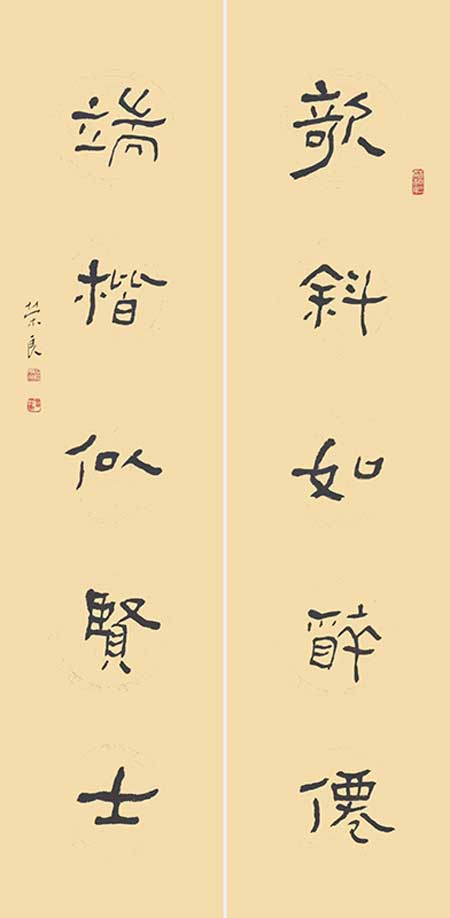 欹斜如醉僊
端楷似賢士
荣良